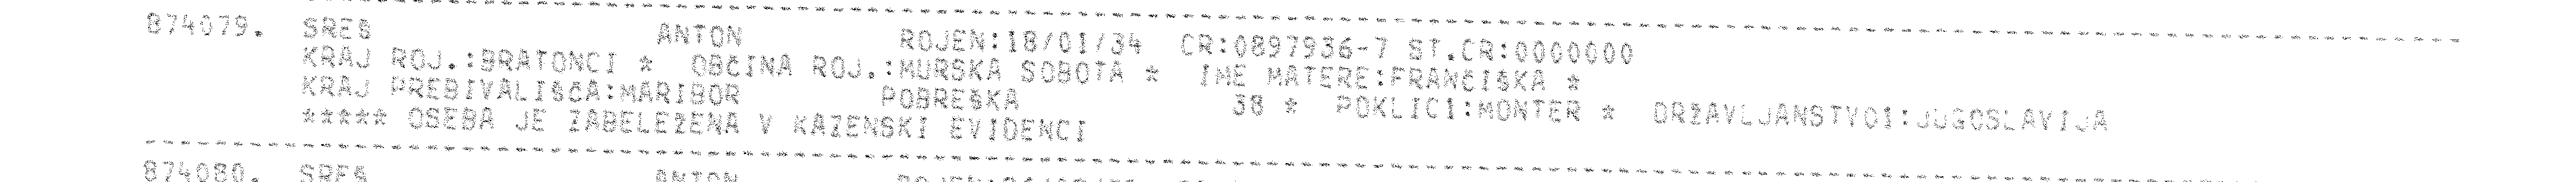 874079. SREŠ ANTON ROJEN:18/01/34 CR:0897936-7 ST.CR:0000000
KRAJ ROJ.:BRATONCI * OBČINA ROJ.:MURSKA SOBOTA * IME MATERE:FRANČIŠKA *
KRAJ PREBIVALIŠČA:MARIBOR POBREŠKA 38 * POKLICI:MONTER * DRŽAVLJANSTVOI:JUGOSLAVIJA
***** OSEBA JE ZABELEŽENA V KAZENSKI EVIDENCI
874080. SREŠ ANTON